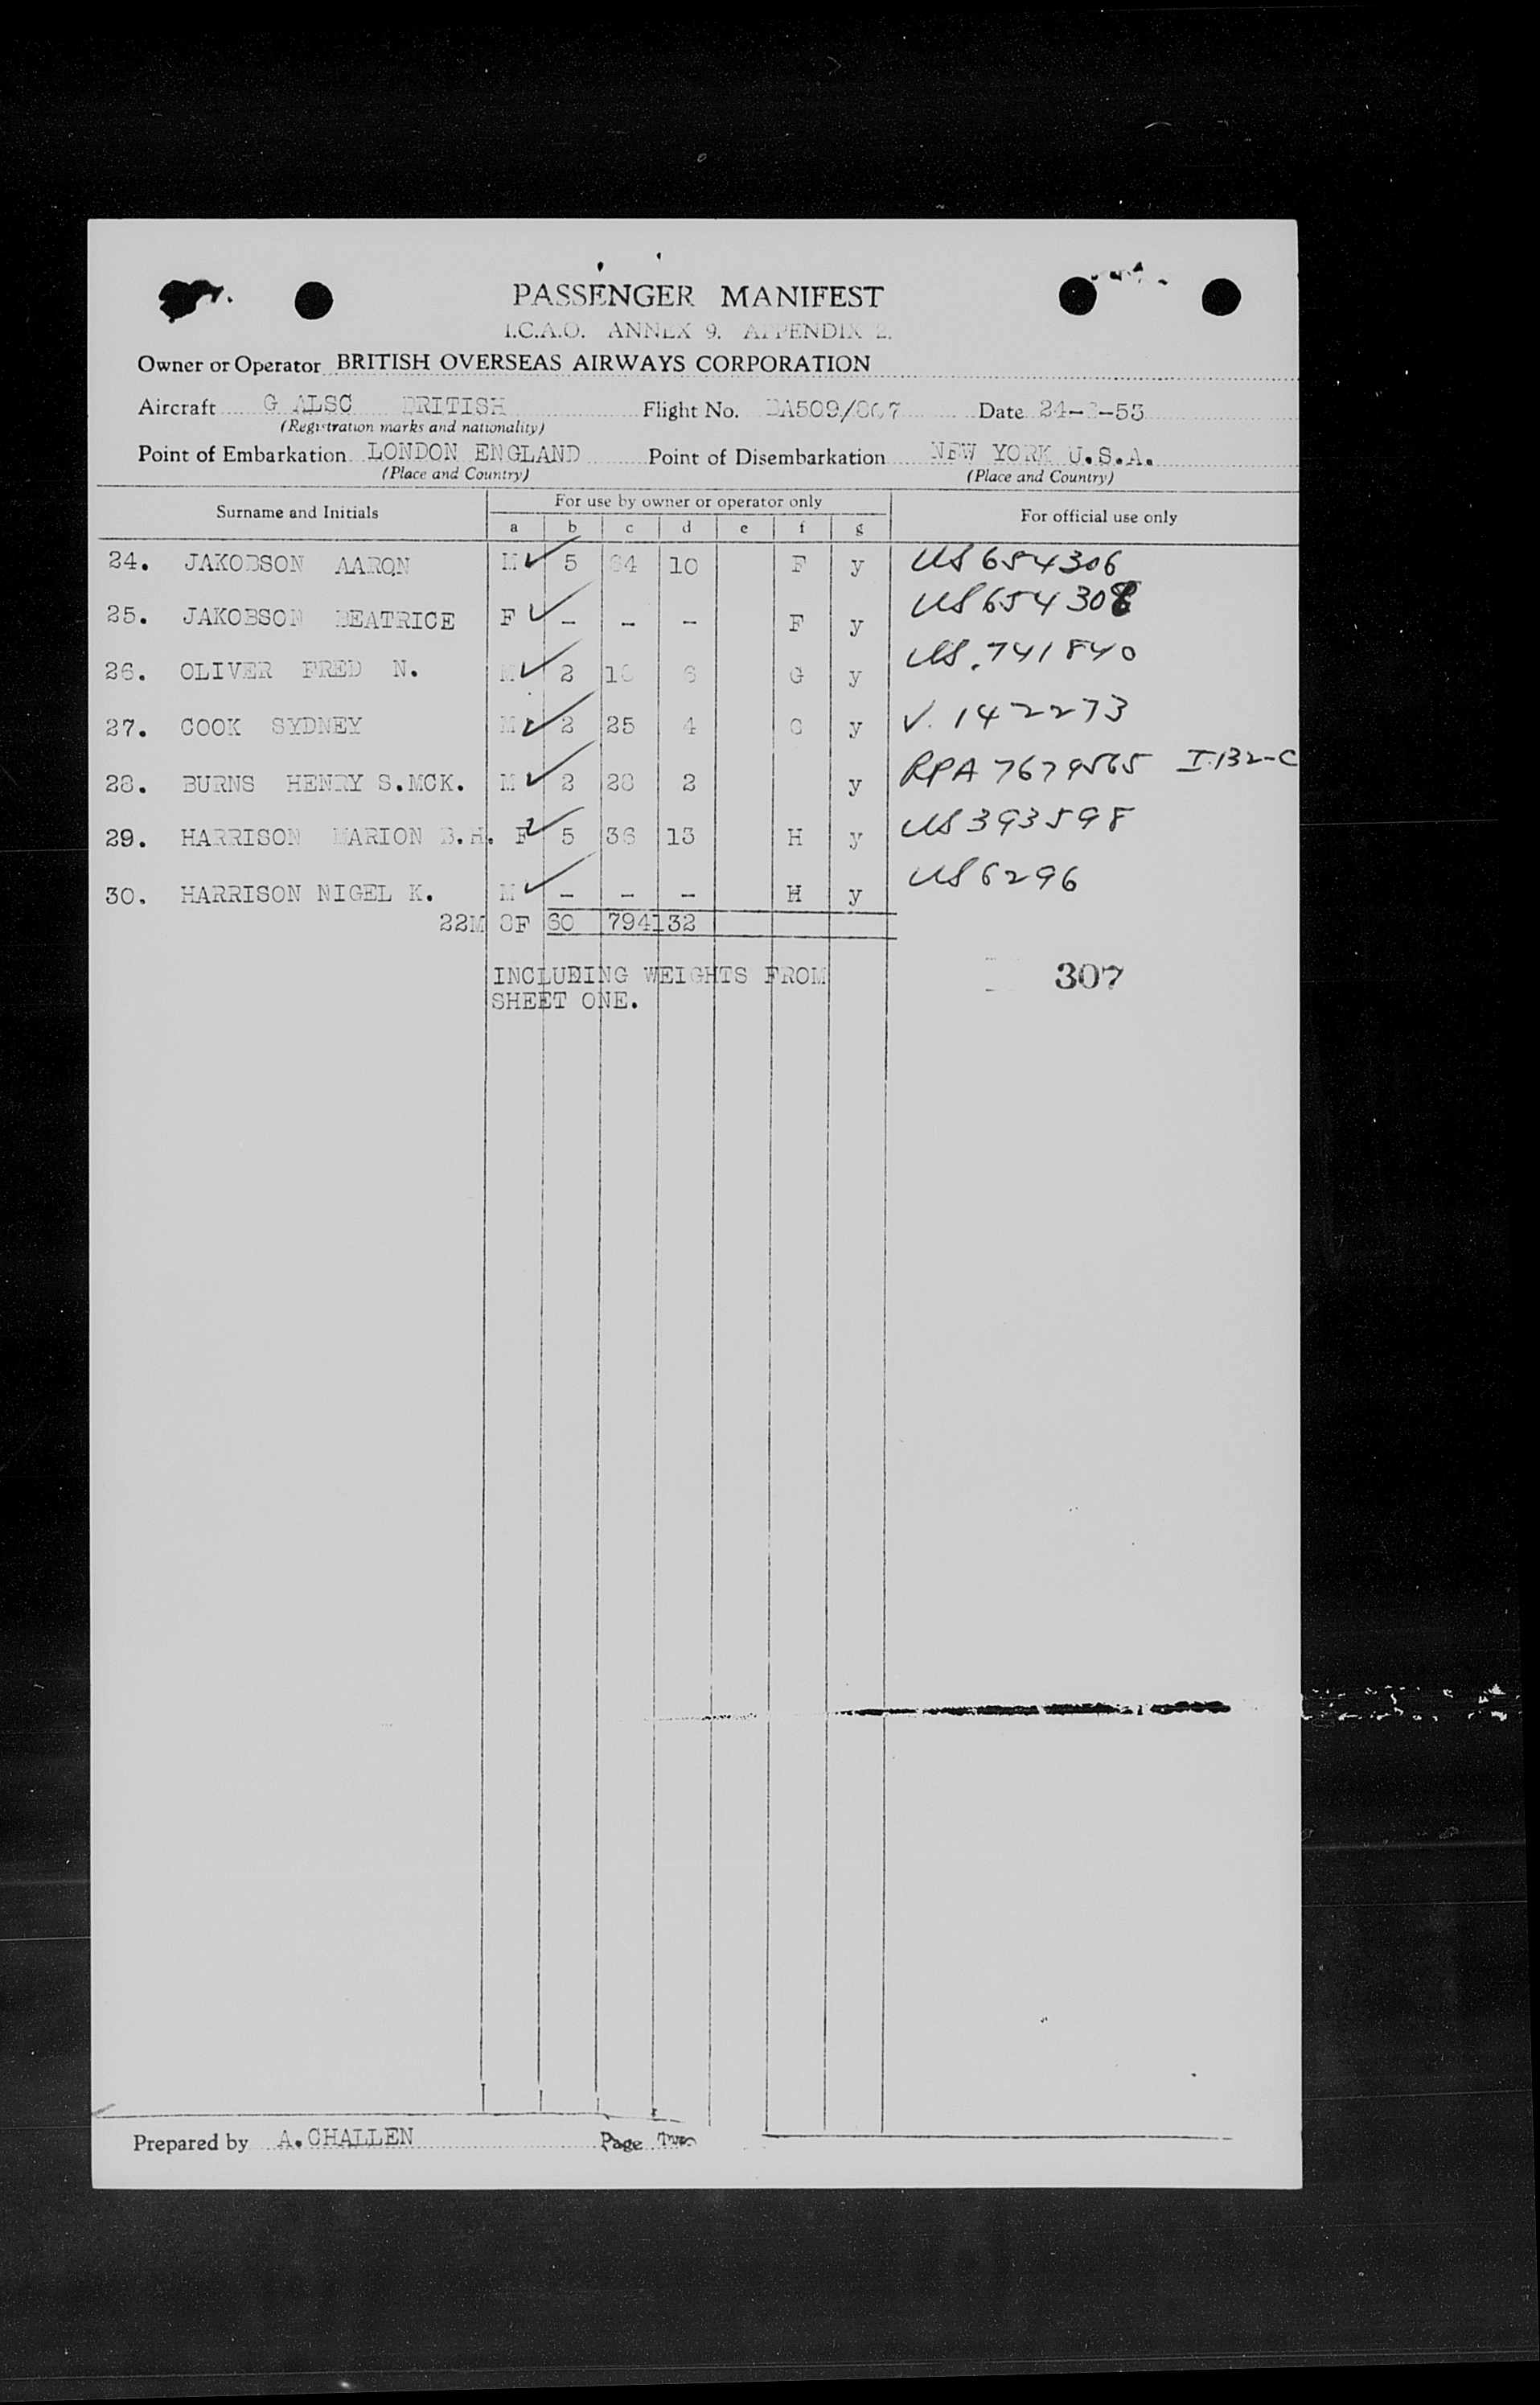 PASSENGER MANIFEST
I.C.A.O. ANNEX 9. APPENDIX 2.
Owner or Operator BRITISH OVERSEAS AIRWAYS CORPORATION
Aircraft G ALSC BRITISH Flight No. BA509/ Date
(Registration marks and nationality)
Point of Embarkation LONDON ENGLAND Point of Disembarkation NEW YORK U.S.A.
(Place and Country) (Place and Country)
Surname and Initials For use by owner or operator only For official use only
a b c d e f g
24. JAKOBSON AARON M ✓ 5 64 10 F y US 654306
25. JAKOBSON BEATRICE F ✓ - - - F y US 654308
26. OLIVER FRED N. M ✓ 2 6 G y US. 741840
27. COOK SYDNEY M ✓ 2 25 4 C y V. 142273
28. BURNS HENRY S.MCK. M ✓ 2 28 2 y RPA 7679565 I.132-C
29. HARRISON MARION B.H. F ✓ 5 36 13 H y US 393598
30. HARRISON NIGEL K. M ✓ - - - H y US 6296
22M 8F 60 794 132
INCLUDING WEIGHTS FROM
SHEET ONE.
307
Prepared by A.CHALLEN Page Two